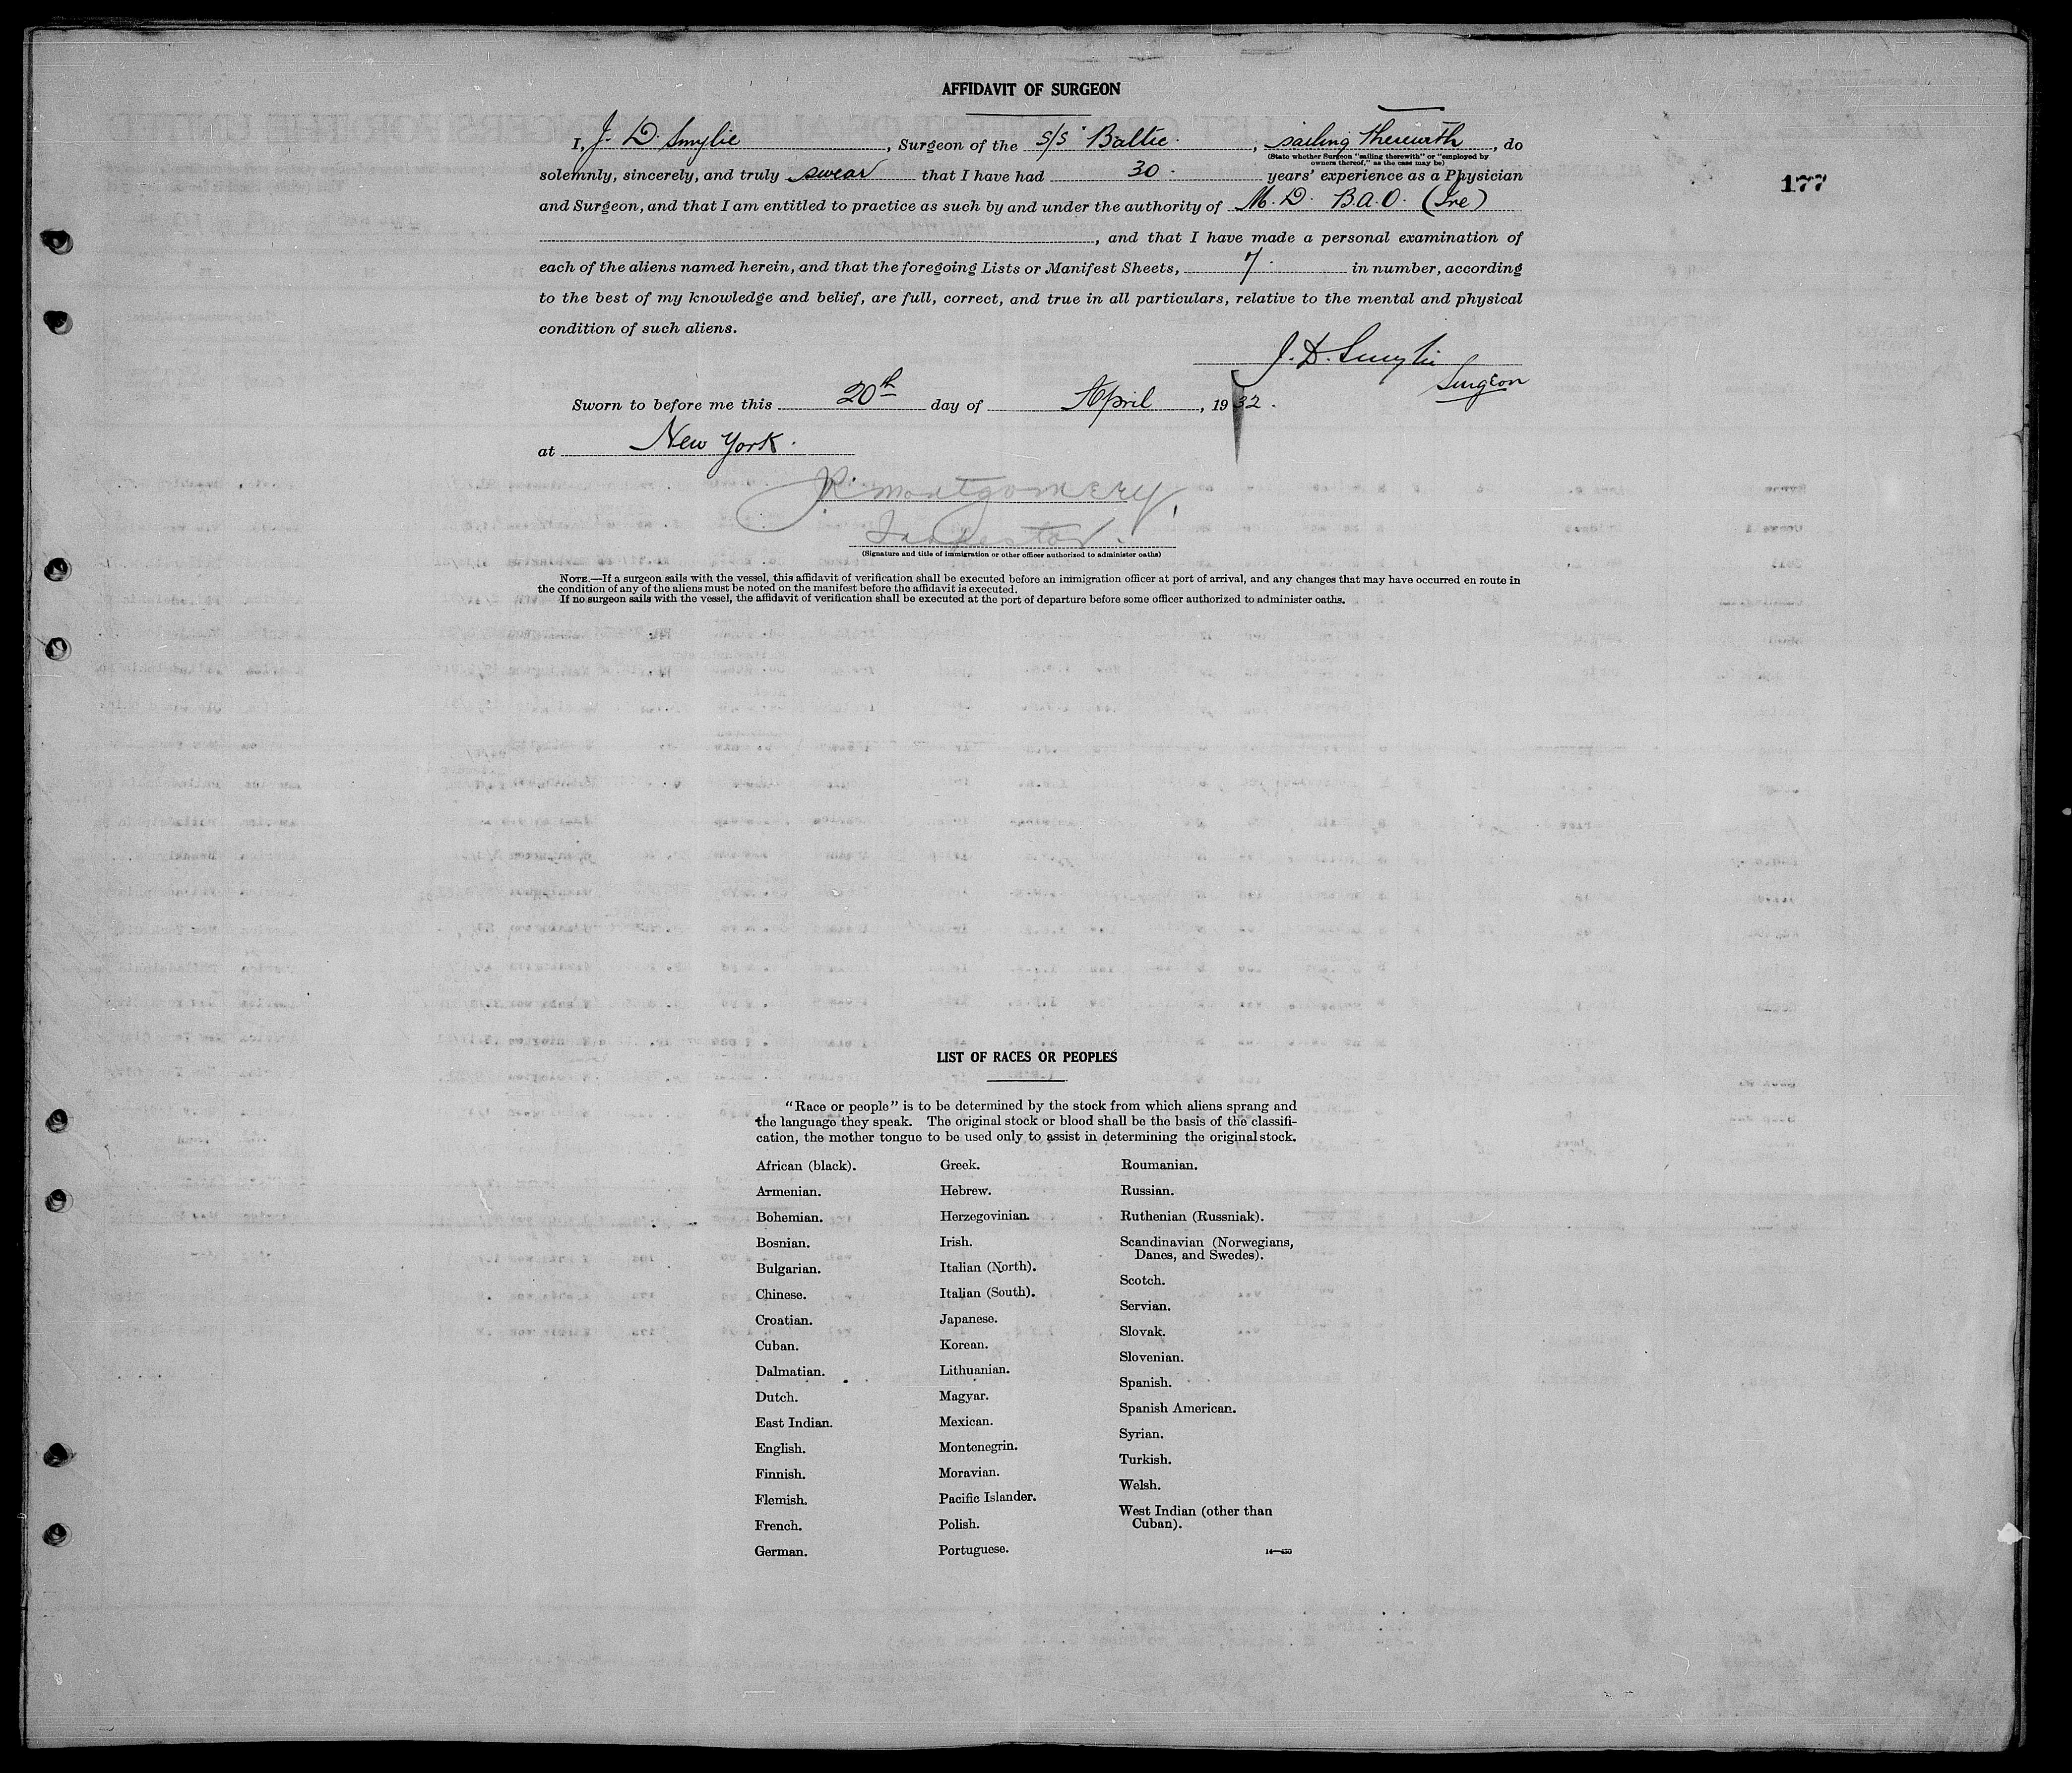 AFFIDAVIT OF SURGEON
I, J. D. Smylie, Surgeon of the S/S Baltic., sailing therewith, do
(State whether Surgeon "sailing therewith" or "employed by
owners thereof," as the case may be)
solemnly, sincerely, and truly swear that I have had 30. years' experience as a Physician
177
and Surgeon, and that I am entitled to practice as such by and under the authority of M. D. B.A.O. (Ire)
, and that I have made a personal examination of
each of the aliens named herein, and that the foregoing Lists or Manifest Sheets, 7. in number, according
to the best of my knowledge and belief, are full, correct, and true in all particulars, relative to the mental and physical
condition of such aliens.
J. D. Smylie
Surgeon
Sworn to before me this 20th day of April, 1932.
at New York.
Montgomery,
(Signature and title of immigration or other officer authorized to administer oaths)
NOTE.—If a surgeon sails with the vessel, this affidavit of verification shall be executed before an immigration officer at port of arrival, and any changes that may have occurred en route in
the condition of any of the aliens must be noted on the manifest before the affidavit is executed.
If no surgeon sails with the vessel, the affidavit of verification shall be executed at the port of departure before some officer authorized to administer oaths.
LIST OF RACES OR PEOPLES
"Race or people" is to be determined by the stock from which aliens sprang and
the language they speak. The original stock or blood shall be the basis of the classifi-
cation, the mother tongue to be used only to assist in determining the original stock.
African (black).
Armenian.
Bohemian.
Bosnian.
Bulgarian.
Chinese.
Croatian.
Cuban.
Dalmatian.
Dutch.
East Indian.
English.
Finnish.
Flemish.
French.
German.
Greek.
Hebrew.
Herzegovinian.
Irish.
Italian (North).
Italian (South).
Japanese.
Korean.
Lithuanian.
Magyar.
Mexican.
Montenegrin.
Moravian.
Pacific Islander.
Polish.
Portuguese.
Roumanian.
Russian.
Ruthenian (Russniak).
Scandinavian (Norwegians,
Danes, and Swedes).
Scotch.
Servian.
Slovak.
Slovenian.
Spanish.
Spanish American.
Syrian.
Turkish.
Welsh.
West Indian (other than
Cuban).
14—430